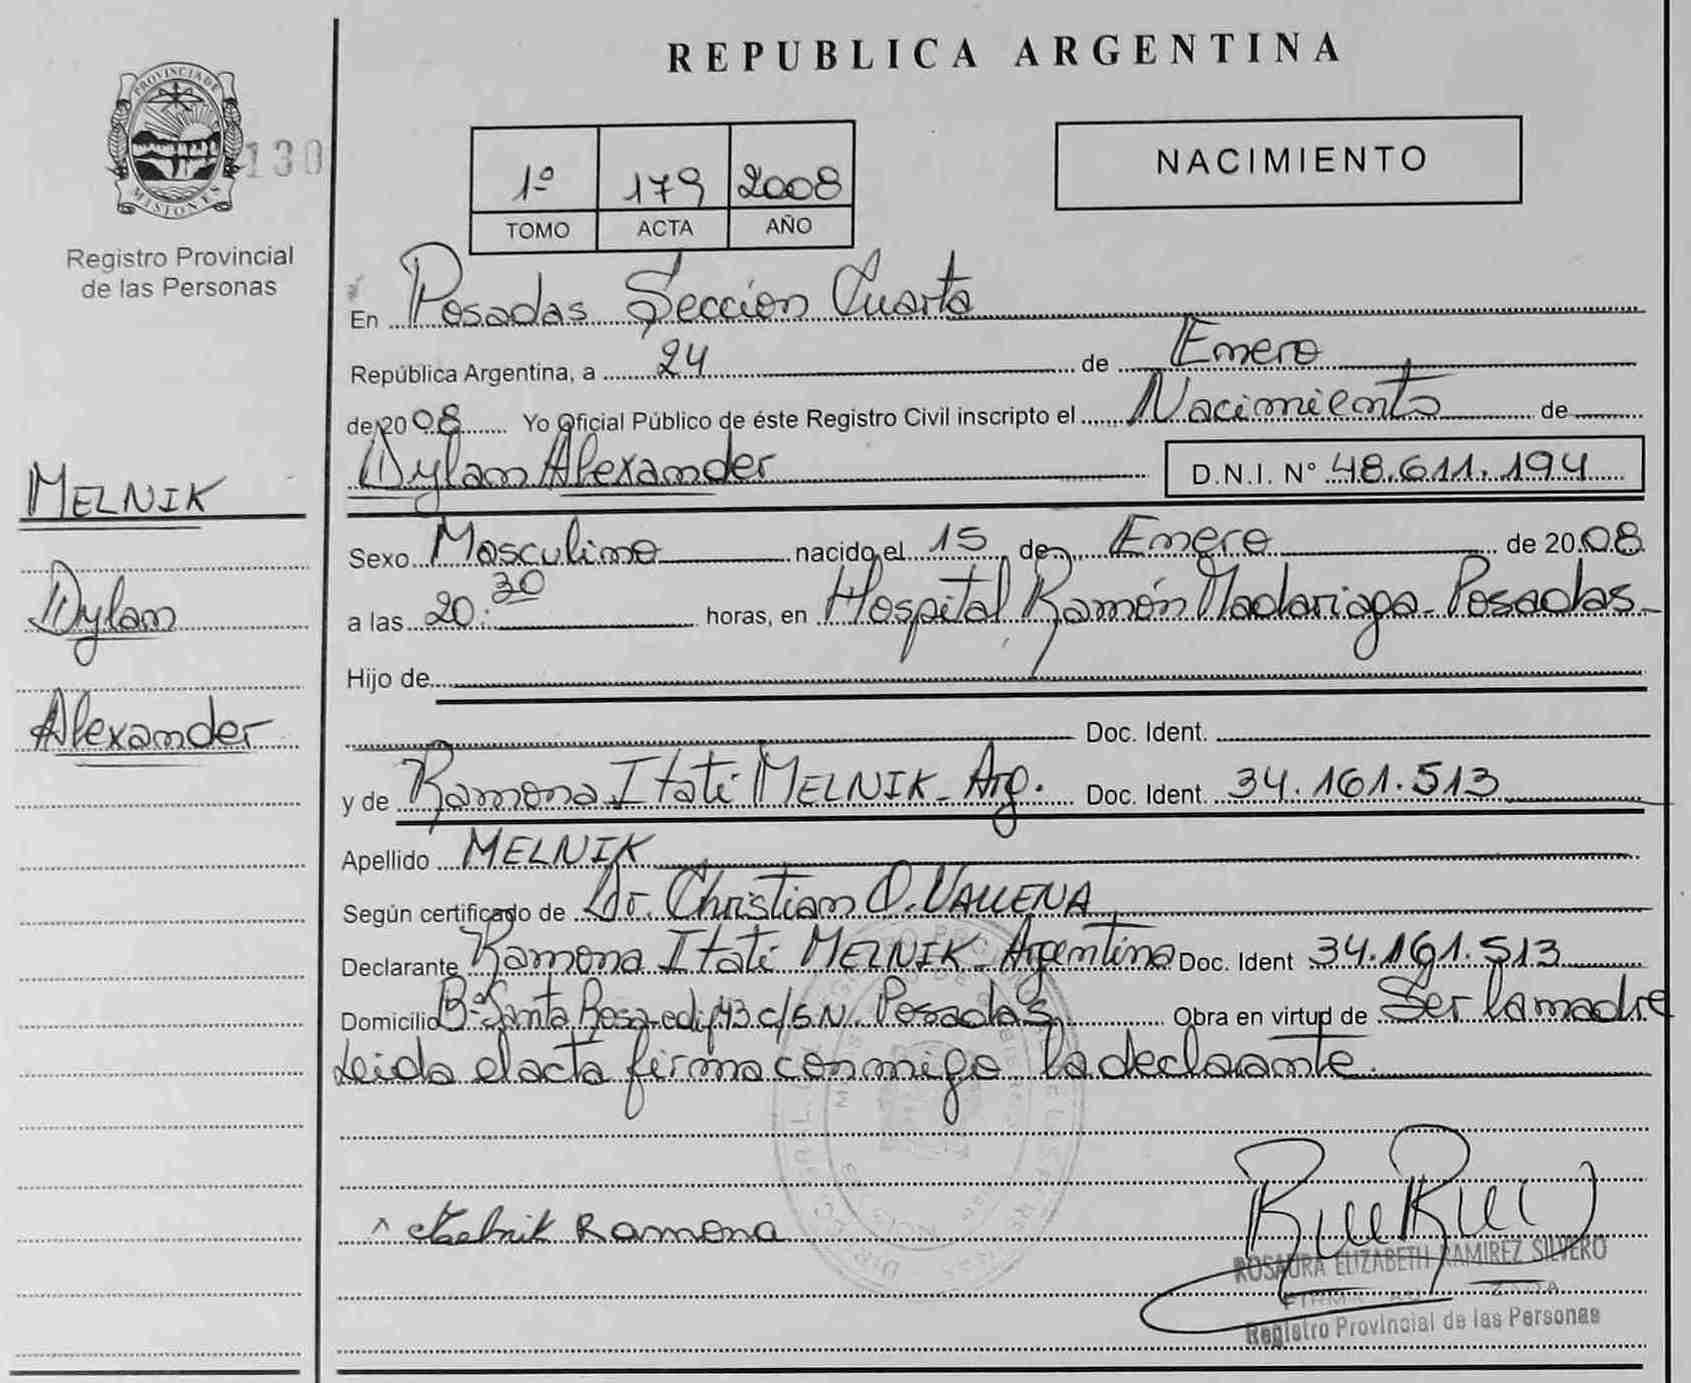 REPUBLICA ARGENTINA
PROVINCIA DE
MISIONES
130
Registro Provincial
de las Personas
1º 179 2008
TOMO ACTA AÑO
NACIMIENTO
En Posadas Sección Cuarta
República Argentina, a 24 de Enero
de 2008 Yo Oficial Público de éste Registro Civil inscripto el Nacimiento de
Dylan Alexander D.N.I. Nº 48.611.194
MELNIK
Dylan
Alexander
Sexo Masculino nacido el 15 de Enero de 2008
a las 20:30 horas, en Hospital Ramón Madariaga - Posadas
Hijo de
Doc. Ident.
y de Ramona Itati MELNIK - Arg. Doc. Ident. 34.161.513
Apellido MELNIK
Según certificado de Dr. Christian O. VALLENA
Declarante Ramona Itati MELNIK - Argentina Doc. Ident 34.161.513
Domicilio Bº Santa Rosa edif 43 c/ S.N. Posadas Obra en virtud de Ser la madre
Leida el acta firma conmigo la declarante.
Melnik Ramona
ROSAURA ELIZABETH RAMIREZ SILVERO
Registro Provincial de las Personas